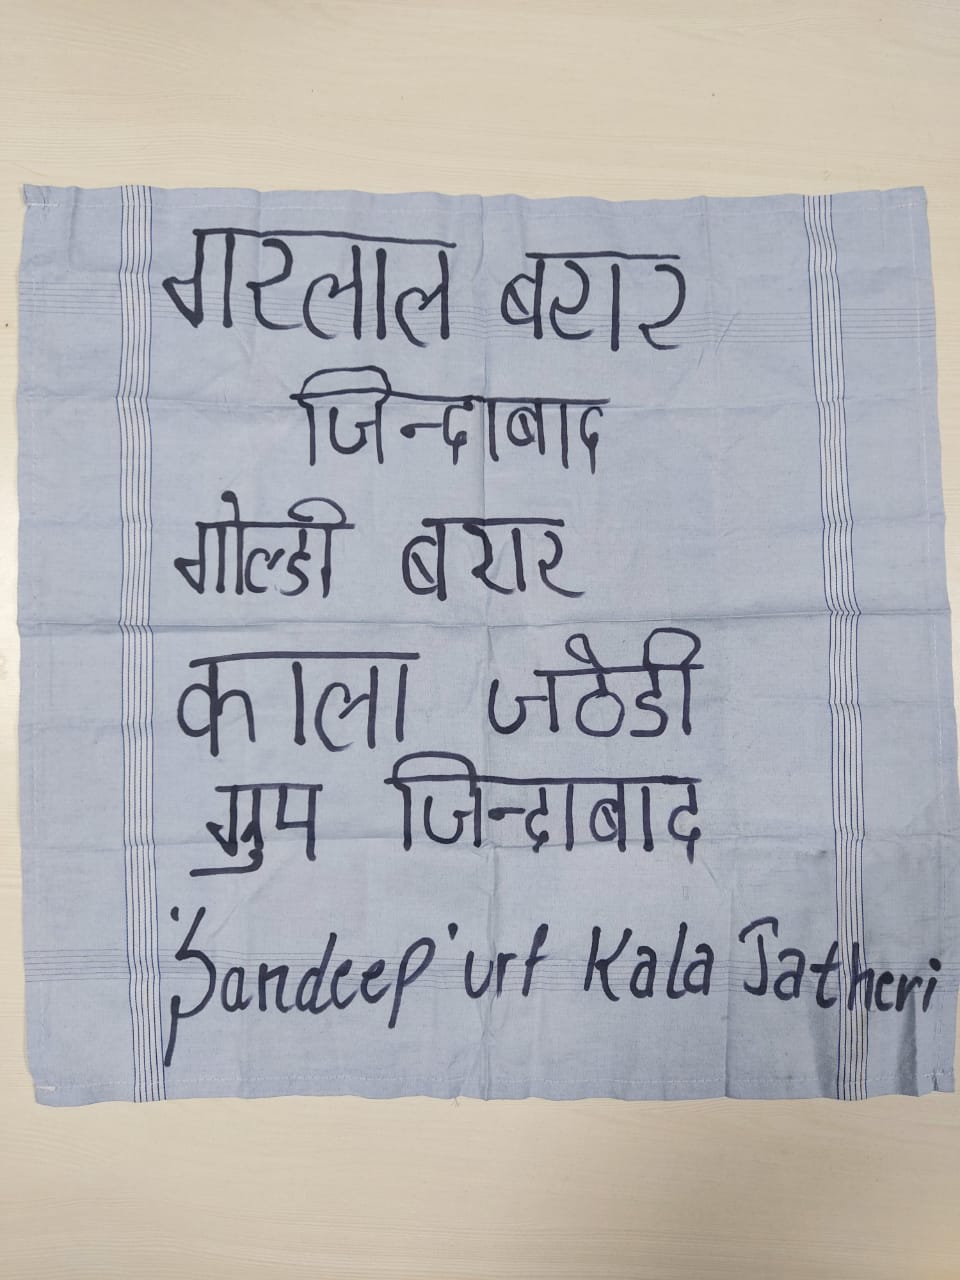 गरलाल बरार
जिन्दाबाद
गोल्डी बरार
काला जठेडी
ग्रुप जिन्दाबाद
'Sandeep' urf Kala Jatheri